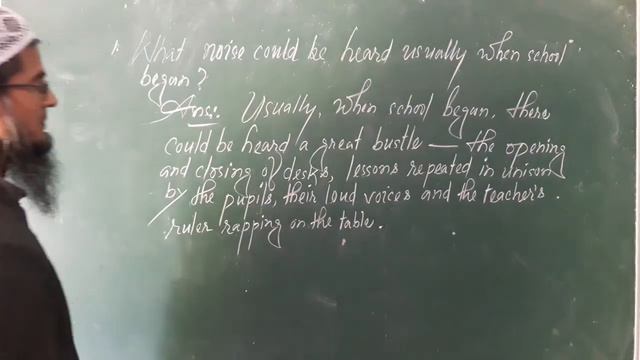 1. What noise could be heard usually when school
began?
Ans: Usually, when school began, there
could be heard a great bustle — the opening
and closing of desks, lessons repeated in unison
by the pupils, their loud voices and the teacher's
ruler rapping on the table.